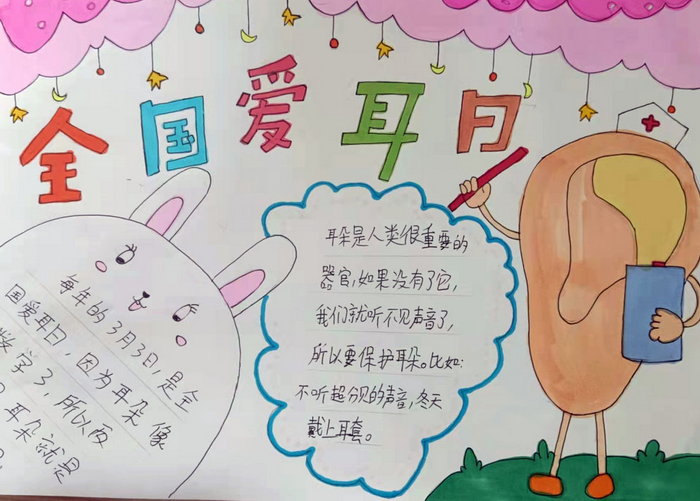 全国爱耳日
耳朵是人类很重要的
器官,如果没有了它,
我们就听不见声音了,
所以要保护耳朵。比如:
不听超分贝的声音,冬天
戴上耳套。
每年的3月3日,是全
国爱耳日,因为耳朵像
数学3,所以反
耳朵就是